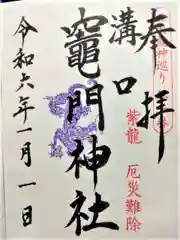 奉拝
神巡り
紫龍 厄災難除
溝口
竈門神社
令和六年一月一日